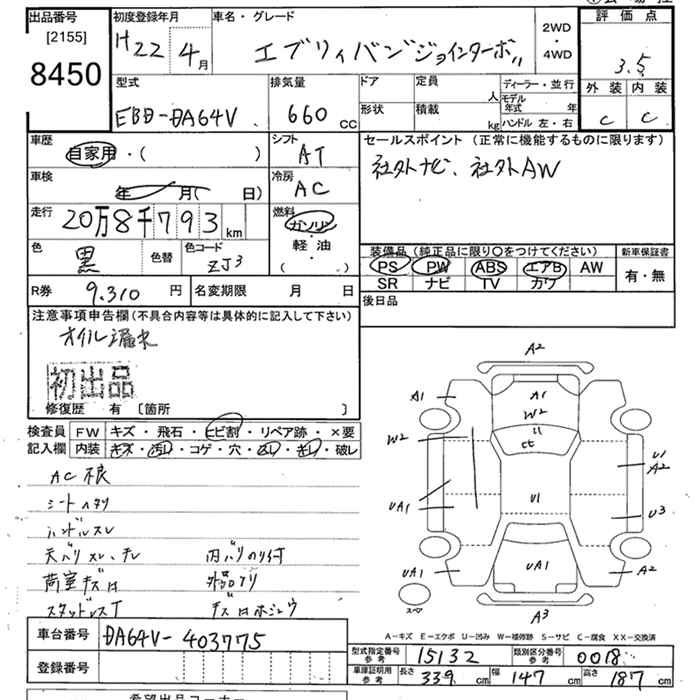 出品番号
[2155]
8450
初度登録年月
H22 4月
車名・グレード
エブリィバンジョインターボ
2WD
・
4WD
評価点
3.5
外装 内装
C C
型式
EBD-DA64V
排気量
660 CC
ドア
形状
定員
人
積載
kg
ディーラー・並行
モデル
年式 年
ハンドル 左・右
車歴
自家用・( )
シフト
AT
セールスポイント (正常に機能するものに限ります)
社外ナビ、社外AW
車検
年 月( 日)
冷房
AC
走行
20万8千793 km
燃料
ガソリン
・
軽油
( )
色
黒
色替
色コード
ZJ3
装備品 (純正品に限り○をつけてください)
PS PW ABS エアB AW
SR ナビ TV カワ
新車保証書
有・無
R券 9.310 円
名変期限 月 日
後日品
注意事項申告欄(不具合内容等は具体的に記入して下さい)
オイル漏れ
初出品
修復歴 有 [箇所 ]
検査員
記入欄
FW キズ・飛石・ヒビ割・リペア跡・×要
内装 キズ・汚レ・コゲ・穴・・破レ
シートヘタリ
ハンドルスレ
荷室キズ
スタッドレス
A2
A1
A1
W2
U
A1
W2
U1
A2
UA1
U1
U3
UA1
UA1
A2
スペア
A3
A-キズ E-エクボ U-凹み W-補修跡 S-サビ C-腐食 XX-交換済
車台番号 DA64V-403775
登録番号
型式指定番号
参考
15132
類別区分番号
参考
0018
車庫証明用
参考
長さ 339 cm
幅 147 cm
高さ 187 cm
希望出品コーナー